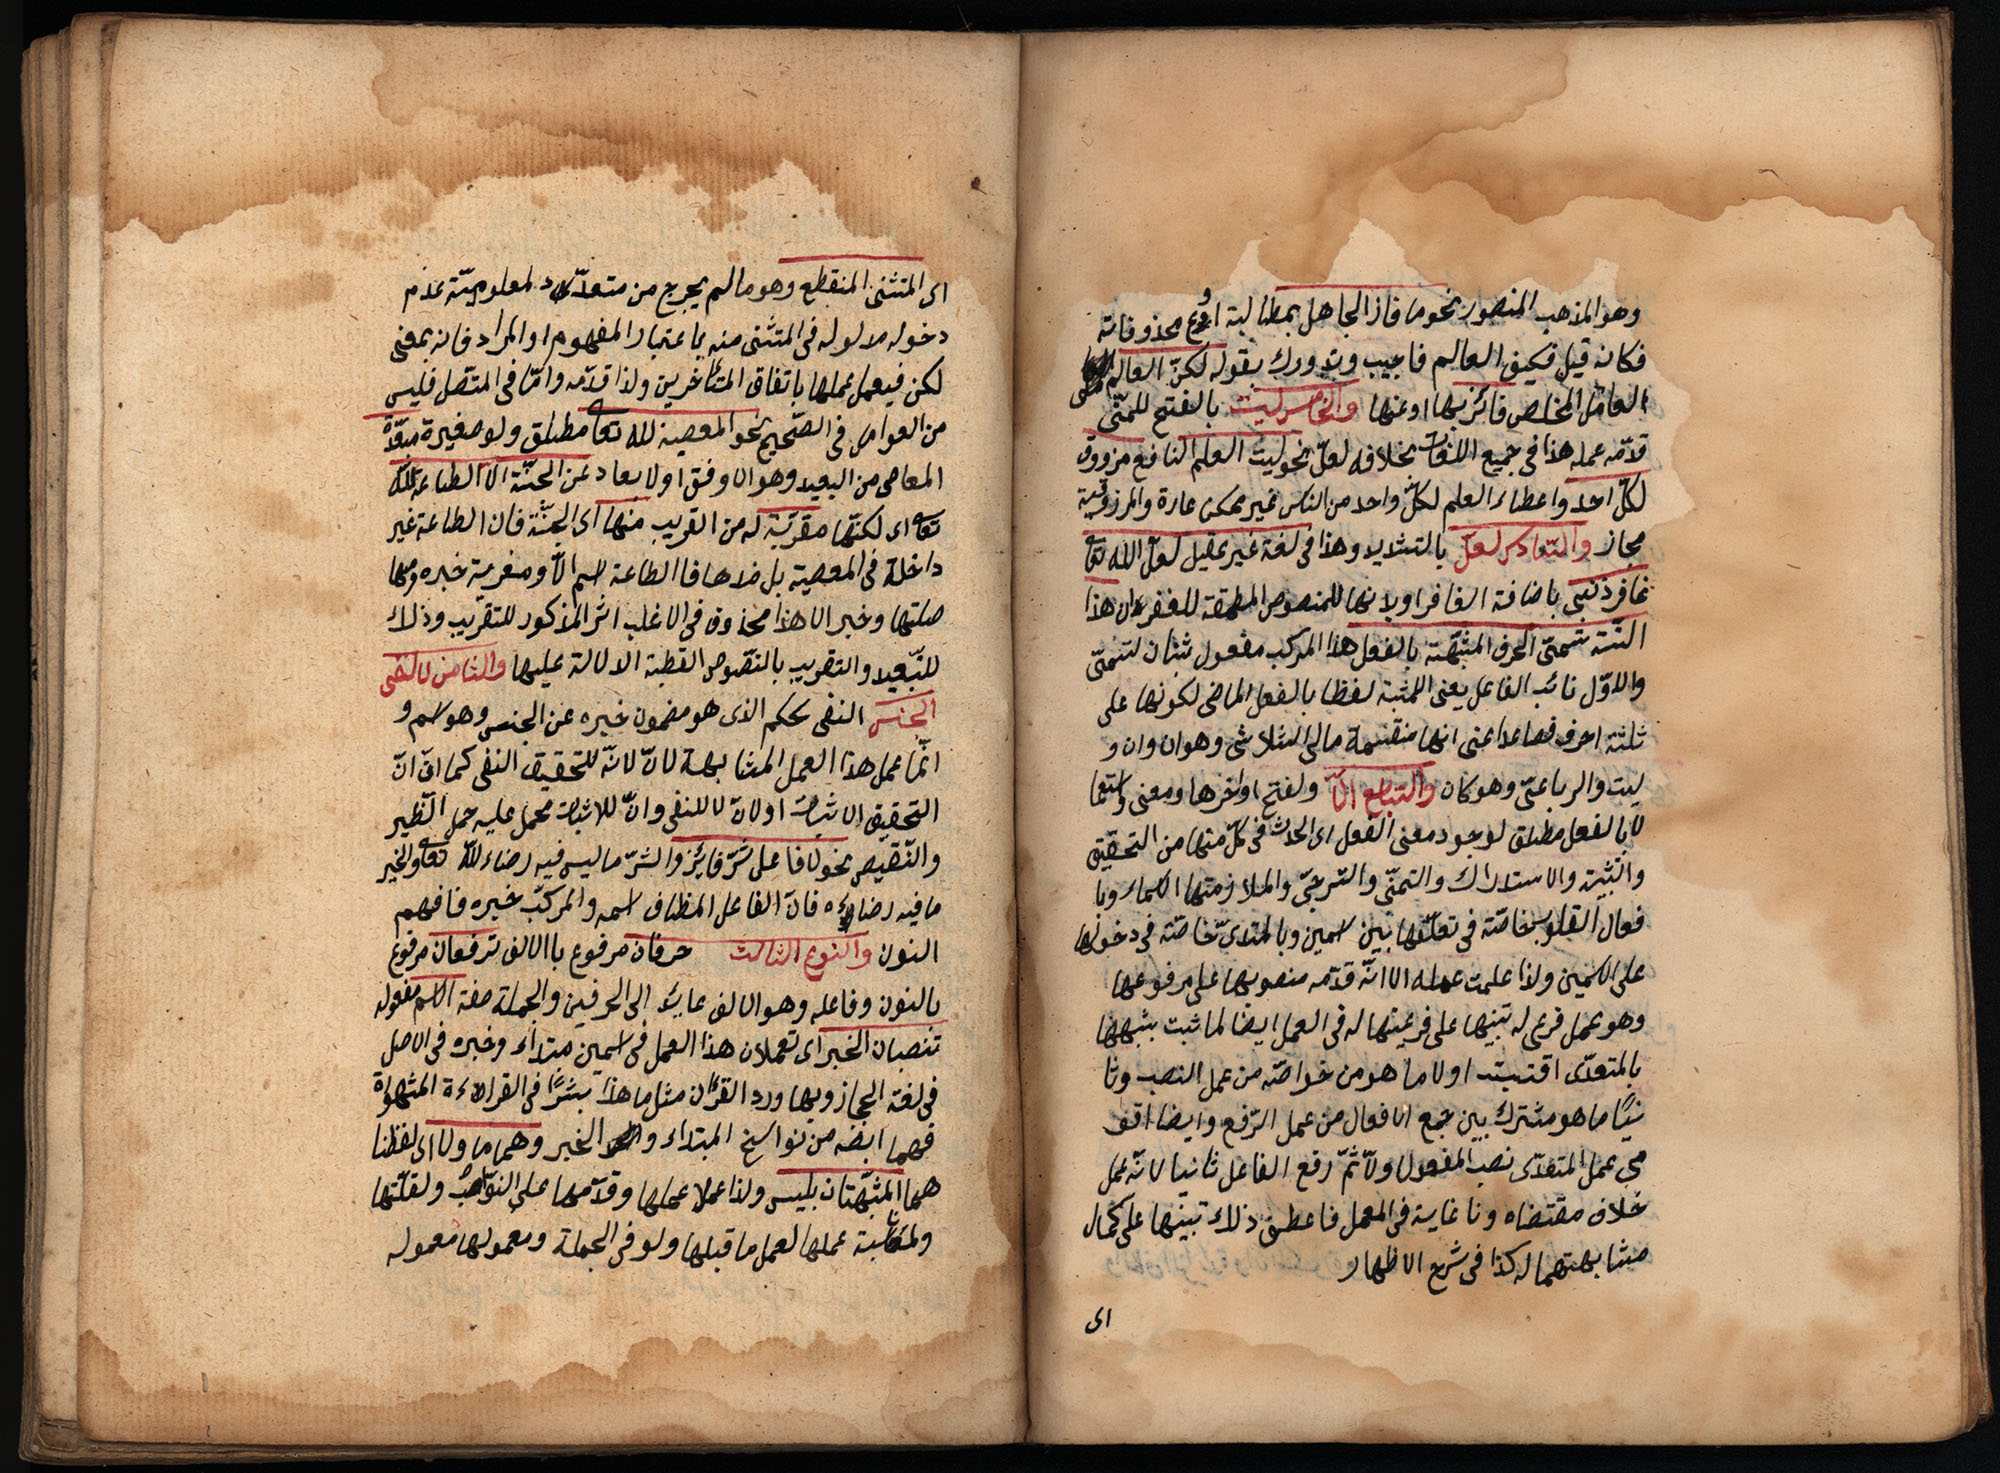 وهو المذهب المنصور نحو ما فاز الجاهل بمطالبة اوع محذوفاته
فكانه قيل فكيف العالم فاجيب وتدورك بقوله لكنّ العالم
العامل المخلص فائز بها او عنها والخامس ليت بالفتح للمتنّى
قدّمه عمله هذا فى جميع اللغات بخلافه لعلّ نحو ليت العلم النافع مرزوق
لكلّ احد واعطاء العلم لكلّ واحد من الناس غير ممكن عادة والمرزوقية
مجاز والسّادس لعلّ بالتشديد وهذا فى لغة غير عقيل لعلّ الله تعا
غافر ذنبى باضافة الغافر اولا نها للمنصوص المطمعة للغفران هذا
الستّة تسمّى الحرف المشبّهة بالفعل هذا المركب مفعول ثان لتسمّى
والاوّل نائب الفاعل يعنى المشبهة لفظا بالفعل الماضى لكونها على
ثلثة احرف فصاعدا عنى انها منقسمة مالى الثلاثى وهو ان وان و
ليت والرباعىّ وهو كان والسّابع الاّ ولفتح اواخرها ومعنى واستعما
لا بالفعل مطلق لوجود معنى الفعل اى الحدث فى كلّ منها من التحقيق
والتّشبيه والاستدراك والتمنّى والترجىّ والملازمتها الاسماء وبا
فعال القلوب خاصّة فى تعلّقها بين اسمين وبالمتعدىّ خاصّة فى دخولها
على الاسمين ولذا علمت عمله الا انّه قدّمه منصوبها على مرفوعها
وهو عمل فرعى له تنبيها على فرعيتها له فى العمل ايضا لما ثبت بشبهها
بالمتعدّى اقتبست اولا ما هو من خواصّه من عمل النصب وثا
نيًا ما هو مشترك بين جمع الافعال من عمل الرّفع وايضا اقف
مى عمل المتعدّى نصب المفعول اولا ثمّ رفع الفاعل ثانيا لانّه عمل
خلاف مقتضاه وناغاية فى العمل فاعطى ذلك تنبيها على كمال
مشابهتهما له كذا فى شرح الاظهار
اى
اى المستثنى المنقطع وهو ما لم يخرج من متعدّد لمعلوميّة عدم
دخوله مدلوله فى المستثنى منه باعتبار المفهوم او المراد فانه بمعنى
لكن فيعمل عملها باتفاق المتأخرين ولذا قدّمه وامّا فى المتّصل فليس
من العوامل فى الصّحيح نحو المعصية لله تعا مطلق ولو صغيرة مبعّدة
المعاصى من البعيد وهو الاوفق اولا بعاد عن الجنّة الا الطاعة لله
تعا اى لكنّها مقرّبة له من القريب منها اى الجنّة فان الطاعة غير
داخلة فى المعصية بل ضدها فا الطاعة اسم الاّ ومقربة خبره ومنها
صلتها وخبر الا هذا محذوف فى الاغلب اثر المذكور للتقريب وذلك
للتّبعيد والتقريب بالنّصوص القطبة الدالة عليها والثامن لا لنفى
الجنس النفى حكم الذى هو مضمون خبره عن الجنس وهو اسم و
انّما عمل هذا العمل لمشابهة لانّ لانّه للتحقيق النفى كما انّ انّ
التحقيق الاثبات او لانّ لا للنفى وانّ للاثبات محمل عليه حمل النّظير
والنّقيض نحو لا فاعل شرّ فائز والشرّ ما ليس فيه رضاء لله تعا والخير
ما فيه رضاؤه فانّ الفاعل المضاف اسمه والمركّب خبره فافهم
النون والنوع الثالث حرفان مرفوع با الالف ترفعان مرفوع
بالنون وفاعله وهو الالف عايد الى الحرفين والجملة صفة الاسم مفعوله
تنصبان الخبر اى تعملان هذا العمل فى اسمين مبتداء وخبره فى الاصل
فى لغة الحجاز وبها ورد القرأن مثل ما هذا بشرًا فى القراءة المشهواة
فهما ايضه من نواسخ المبتداء والخبر وهما ما ولا اى لفظنا
هما المشبّهتان بليس ولذا عملا عملها وقدّمها على النوّاصب ولقلّتها
ولمناسبة عملها لعمل ما قبلها ولو فى الجملة ومعمولها معموله